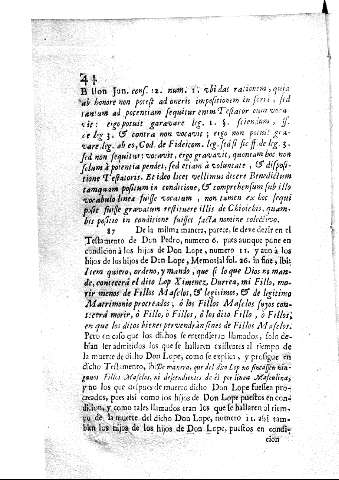 41
Bellon Jun. cons. 12. num. 1. ubi dat rationem, quia
ab honore non potest ad oneris impositionem in ferri, sed
tantum ad potentiam sequitur enim Testator eum voca-
vit: ergo potuit gravare leg. 1. §. sciendum, ff.
de leg. 3. & contra non vocavit; ergo non potuit gra-
vare leg. ab eo, Cod. de Fideicom. leg. sed si sic ff de leg. 3.
sed non sequitur; vocavit, ergo gravavit, quoniam hoc non
solum à potentia pendet, sed etiam à voluntate, & disposi-
tione Testatoris. Et ideo licet vellimus dicere Benedictum
tamquam positum in conditione, & comprehensum sub illo
vocabulo linea fuisse vocatum, non tamen ex hoc sequi
posse fuisse gravatum restituere illis de Chiochis, quam-
bis positio in conditione fuisset facta nomine colectivo.
87 De la misma manera, parece, se deve dezir en el
Testamento de Don Pedro, numero 6. pues aunque pone en
condicion à los hijos de Don Lope, numero 11. y aun à los
hijos de los hijos de Don Lope, Memorial fol. 26. in fine, ibi:
Item quiero, ordeno, y mando, que si lo que Dios no man-
de, contecerá el dito Lop Ximenez, Durrea, mi Fillo, mo-
rir menos de Fillos Masclos, & legitimos, & de legitimo
Matrimonio procreados, ò los Fillos Masclos suyos con-
tecerá morir, ò Fillo, ò Fillos, ò los dito Fillo, ò Fillos,
en que los ditos bienes pervendran sines de Fillos Masclos.
Pero en caso que los dichos se entendieran llamados, solo de-
bian ser admitidos los que se hallaran existentes al tiempo de
la muerte de dicho Don Lope, como se explica, y prosigue en
dicho Testamento, ib. De manera, que del dito Lop no fincassen nin-
gunos Fillos Masclos, ni descendientes de èl por linea Masculina,
y no los que despues de muerto dicho Don Lope fuessen pro-
creados, pues assi como los hijos de Don Lope puestos en con-
dicion, y como tales llamados eran los que se hallaren al tiem-
po de la muerte del dicho Don Lope, numero 11. assi tam-
bien los hijos de los hijos de Don Lope, puestos en condi-
cion